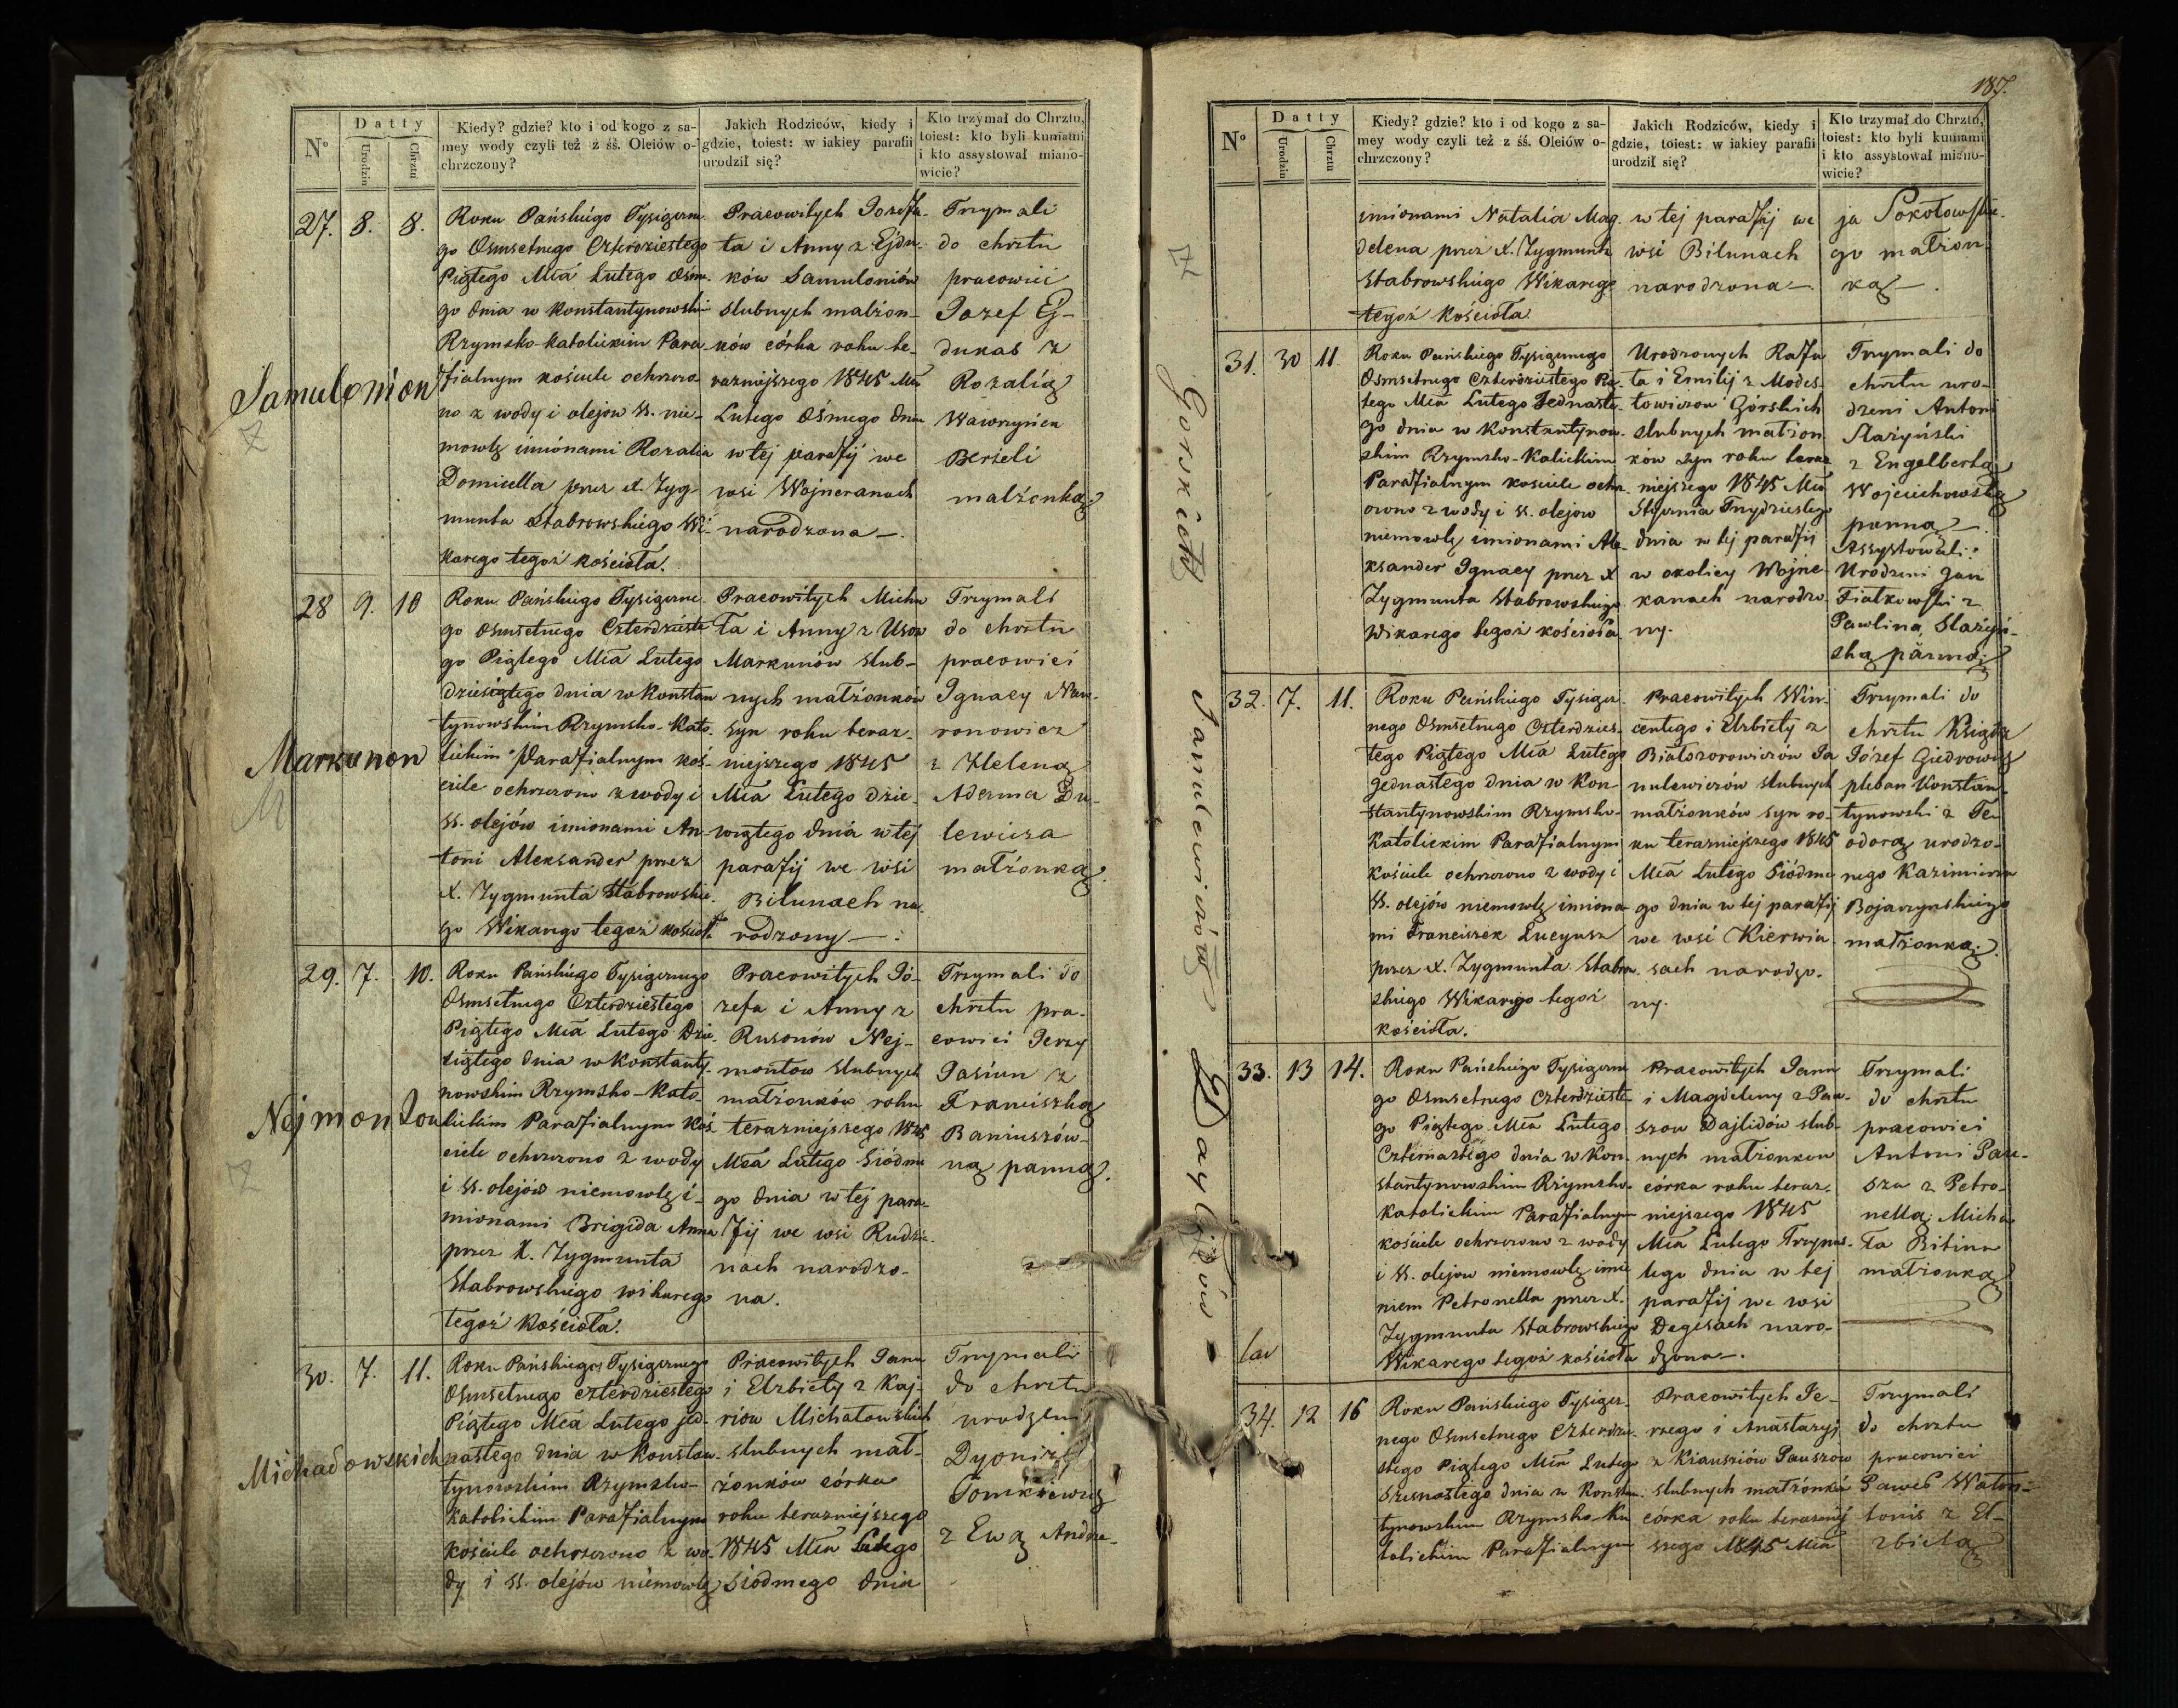 187.
Nº
Datty
Urodzin
Chrztu
Kiedy? gdzie? kto i od kogo z sa-
mey wody czyli też z śś. Oleiów o-
chrzczony?
Jakich Rodziców, kiedy i
gdzie, toiest: w iakiey parafii
urodził się?
Kto trzymał do Chrztu,
toiest: kto byli kumami
i kto assystował miano-
wicie?
Samulonion
27. 8. 8.
Roku Pańskiego Tysiączne-
go Osmsetnego Czterdziestego
Piątego Mca Lutego Osm-
go dnia w Konstantynowski
Rzymsko-Katolickim Para-
fialnym kościele ochrzczo-
no z wody i olejow SS. nie-
mowlę imionami Rozalia
Domicella przez X. Zyg-
munta Stabrowskiego Wi-
karego tegoż kościoła.
Pracowitych Jozefa-
ta i Anny z Ejdu-
ków Samuloniów
slubnych małżon-
ków córka roku te-
razniejszego 1845 Mca
Lutego Ósmego dnia
w tej parafij we
wsi Wojneranach
narodzona —.
Trzymali
do chrztu
pracowici
Jozef Ej-
dukas z
Rozalią
Wawrzyńca
Berżeli
małżonką
Markunon
28 9. 10
Roku Pańskiego Tysiączne-
go Osmsetnego Czterdzieste-
go Piątego Mca Lutego
dziesiątego dnia w Konstan-
tynowskim Rzymsko-Kato-
lickim Parafialnym koś-
ciele ochrzczono z wody i
SS. olejów imionami An-
toni Aleksander przez
X. Zygmunta Stabrowskie-
go Wikarego tegoż kościoła
Pracowitych Micha-
ła i Anny z Usow
Markunów slub-
nych małżonków
syn roku teraz-
niejszego 1845
Mca Lutego dzie-
wiątego dnia w tej
parafij we wsi
Bilunach na-
rodzony —.
Trzymali
do chrztu
pracowici
Ignacy Naw-
ronowicz
z Heleną
Aderma Du-
lewicza
małżonką.
Nejmontow
29. 7. 10.
Roku Pańskiego Tysiącznego
Osmsetnego Czterdziestego
Piątego Mca Lutego Dzie-
siątego dnia w Konstanty-
nowskim Rzymsko-Kato-
lickim Parafialnym Koś-
ciele ochrzczono z wody
i SS. olejów niemowlę i-
mionami Brigida Anna
przez X. Zygmunta
Stabrowskiego wikarego
tegoż Kościoła.
Pracowitych Jó-
zefa i Anny z
Rusonów Nej-
montow slubnych
małżonków roku
terazniejszego 1845
Mca Lutego Siódme-
go dnia w tej para-
fij we wsi Rudzia-
nach narodzo-
na.
Trzymali do
chrztu pra-
cowici Jerzy
Jasiun z
Franciszką
Baniuszów-
ną panną.
Michadowskich
30. 7. 11.
Roku Pańskiego Tysiącznego
Osmsetnego czterdziestego
Piątego Mca Lutego jed-
nastego dnia w Konstan-
tynowskim Rzymsko-
Katolickim Parafialnym
kościele ochrzczono z wo-
dy i SS. olejów niemowlę
Pracowitych Jana
i Elzbiety z Kaj-
riów Michałowskich
slubnych mał-
żonków córka
roku terazniejszego
1845 Mca Lutego
siodmego dnia
Trzymali
do chrztu
urodzeni
Dyonizy
Tomkiewicz
z Ewą Andrze-
imionami Natalia Mag-
delena przez X. Zygmunta
Stabrowskiego Wikarego
tegoż Kościoła.
w tej parafij we
wsi Bilunach
narodzona —.
ja Sokołowskie-
go małżon-
ką —.
Gorskich
31. 30 11.
Roku Pańskiego Tysiącznego
Osmsetnego Czterdziestego Pią-
tego Mca Lutego Jednaste-
go dnia w Konstantynow-
skim Rzymsko-Kalickim
Parafialnym kościele ochrz-
czono z wody i SS. olejow
niemowlę imionami Ale-
ksander Ignacy przez X
Zygmunta Stabrowskiego
Wikarego tegoż kościoła
Urodzonych Rafa-
ła i Emilij z Modes-
towiczow Górskich
slubnych małżon-
ków syn roku teraz-
niejszego 1845 Mca
Stycznia Trzydziestego
dnia w tej parafij
w okolicy Wojne-
kanach narodzo-
ny.
Trzymali do
chrztu uro-
dzeni Antoni
Stażyński
z Engelbertą
Wojciechowską
panną —.
Assystowali:
Urodzeni Jan
Fiałkowski z
Pawliną Stażyń-
ską panną
Janulewiczów
32. 7. 11.
Roku Pańskiego Tysiącz-
nego Osmsetnego Czterdzies-
tego Piątego Mca Lutego
Jednastego dnia w Kon-
stantynowskim Rzymsko-
Katolickim Parafialnym
kościele ochrzczono z wody i
SS. olejów niemowlę imiona-
mi Franciszek Lucyusz
przez X. Zygmunta Stabrow-
skiego Wikarego tegoż
kościoła.
Pracowitych Win-
centego i Elzbiety z
Białozorowiczów Ja-
nulewiczów slubnych
małżonków syn ro-
ku terazniejszego 1845
Mca Lutego Siódme-
go dnia w tej parafij
we wsi Kierwia-
sach narodzo-
ny.
Trzymali do
chrztu Książdz
Józef Giedrowicz
pleban Konstan-
tynowski z Te-
odorą urodzo-
nego Kazimierza
Bojarzynskiego
małżonką.
Daylidów
33. 13 14.
Roku Pańskiego Tysiączne-
go Osmsetnego Czterdzieste-
go Piątego Mca Lutego
Czternastego dnia w Kon-
stantynowskim Rzymsko-
Katolickim Parafialnym
kościele ochrzczono z wody
i SS. olejow niemowlę imie-
niem Petronella przez X.
Zygmunta Stabrowskiego
Wikarego tegoż kościoła
Pracowitych Jana
i Magdeleny z Pau-
szow Dajlidów slub-
nych małżonkow
córka roku teraz-
niejszego 1845
Mca Lutego Trzynas-
tego dnia w tej
parafij we wsi
Degesach naro-
dzona —.
Trzymali
do chrztu
pracowici
Antoni Pau-
sza z Petro-
nellą Micha-
ła Bitina
małżonką
34. 12 16
Roku Pańskiego Tysiącz-
nego Osmsetnego Czterdzie-
stego Piątego Mca Lutego
Szesnastego dnia w Konstan-
tynowskim Rzymsko-Ka-
tolickim Parafialnym
Pracowitych Je-
rzego i Anastazyi
z Kiausziów Pauszow
slubnych małżonków
córka roku terazniej-
szego 1845 Mca
Trzymali
do chrztu
pracowici
Paweł Waton-
tonis z El-
zbietą